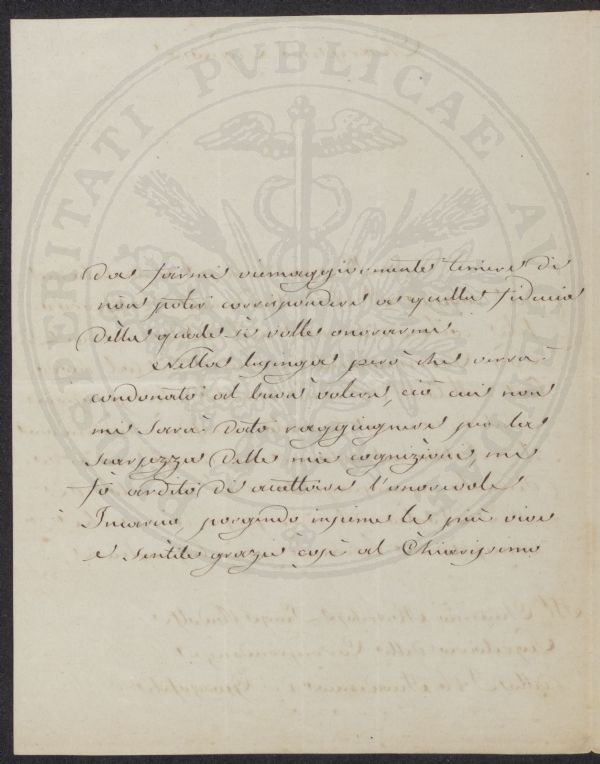 PROSPERITATI PVBLICAE AVGENDAE
da farmi viemaggiormente temere di
non poter corrispondere a quella fiducia
della quale si volle onorarmi.
Nella lusinga però che verrà
condonato al buon volere, ciò cui non
mi sarà dato raggiugnere per la
scarsezza delle mie cognizioni, mi
fò ardito di accettare l'onorevole
Incarico, porgendo insieme le più vive
e sentite grazie così al Chiarissimo